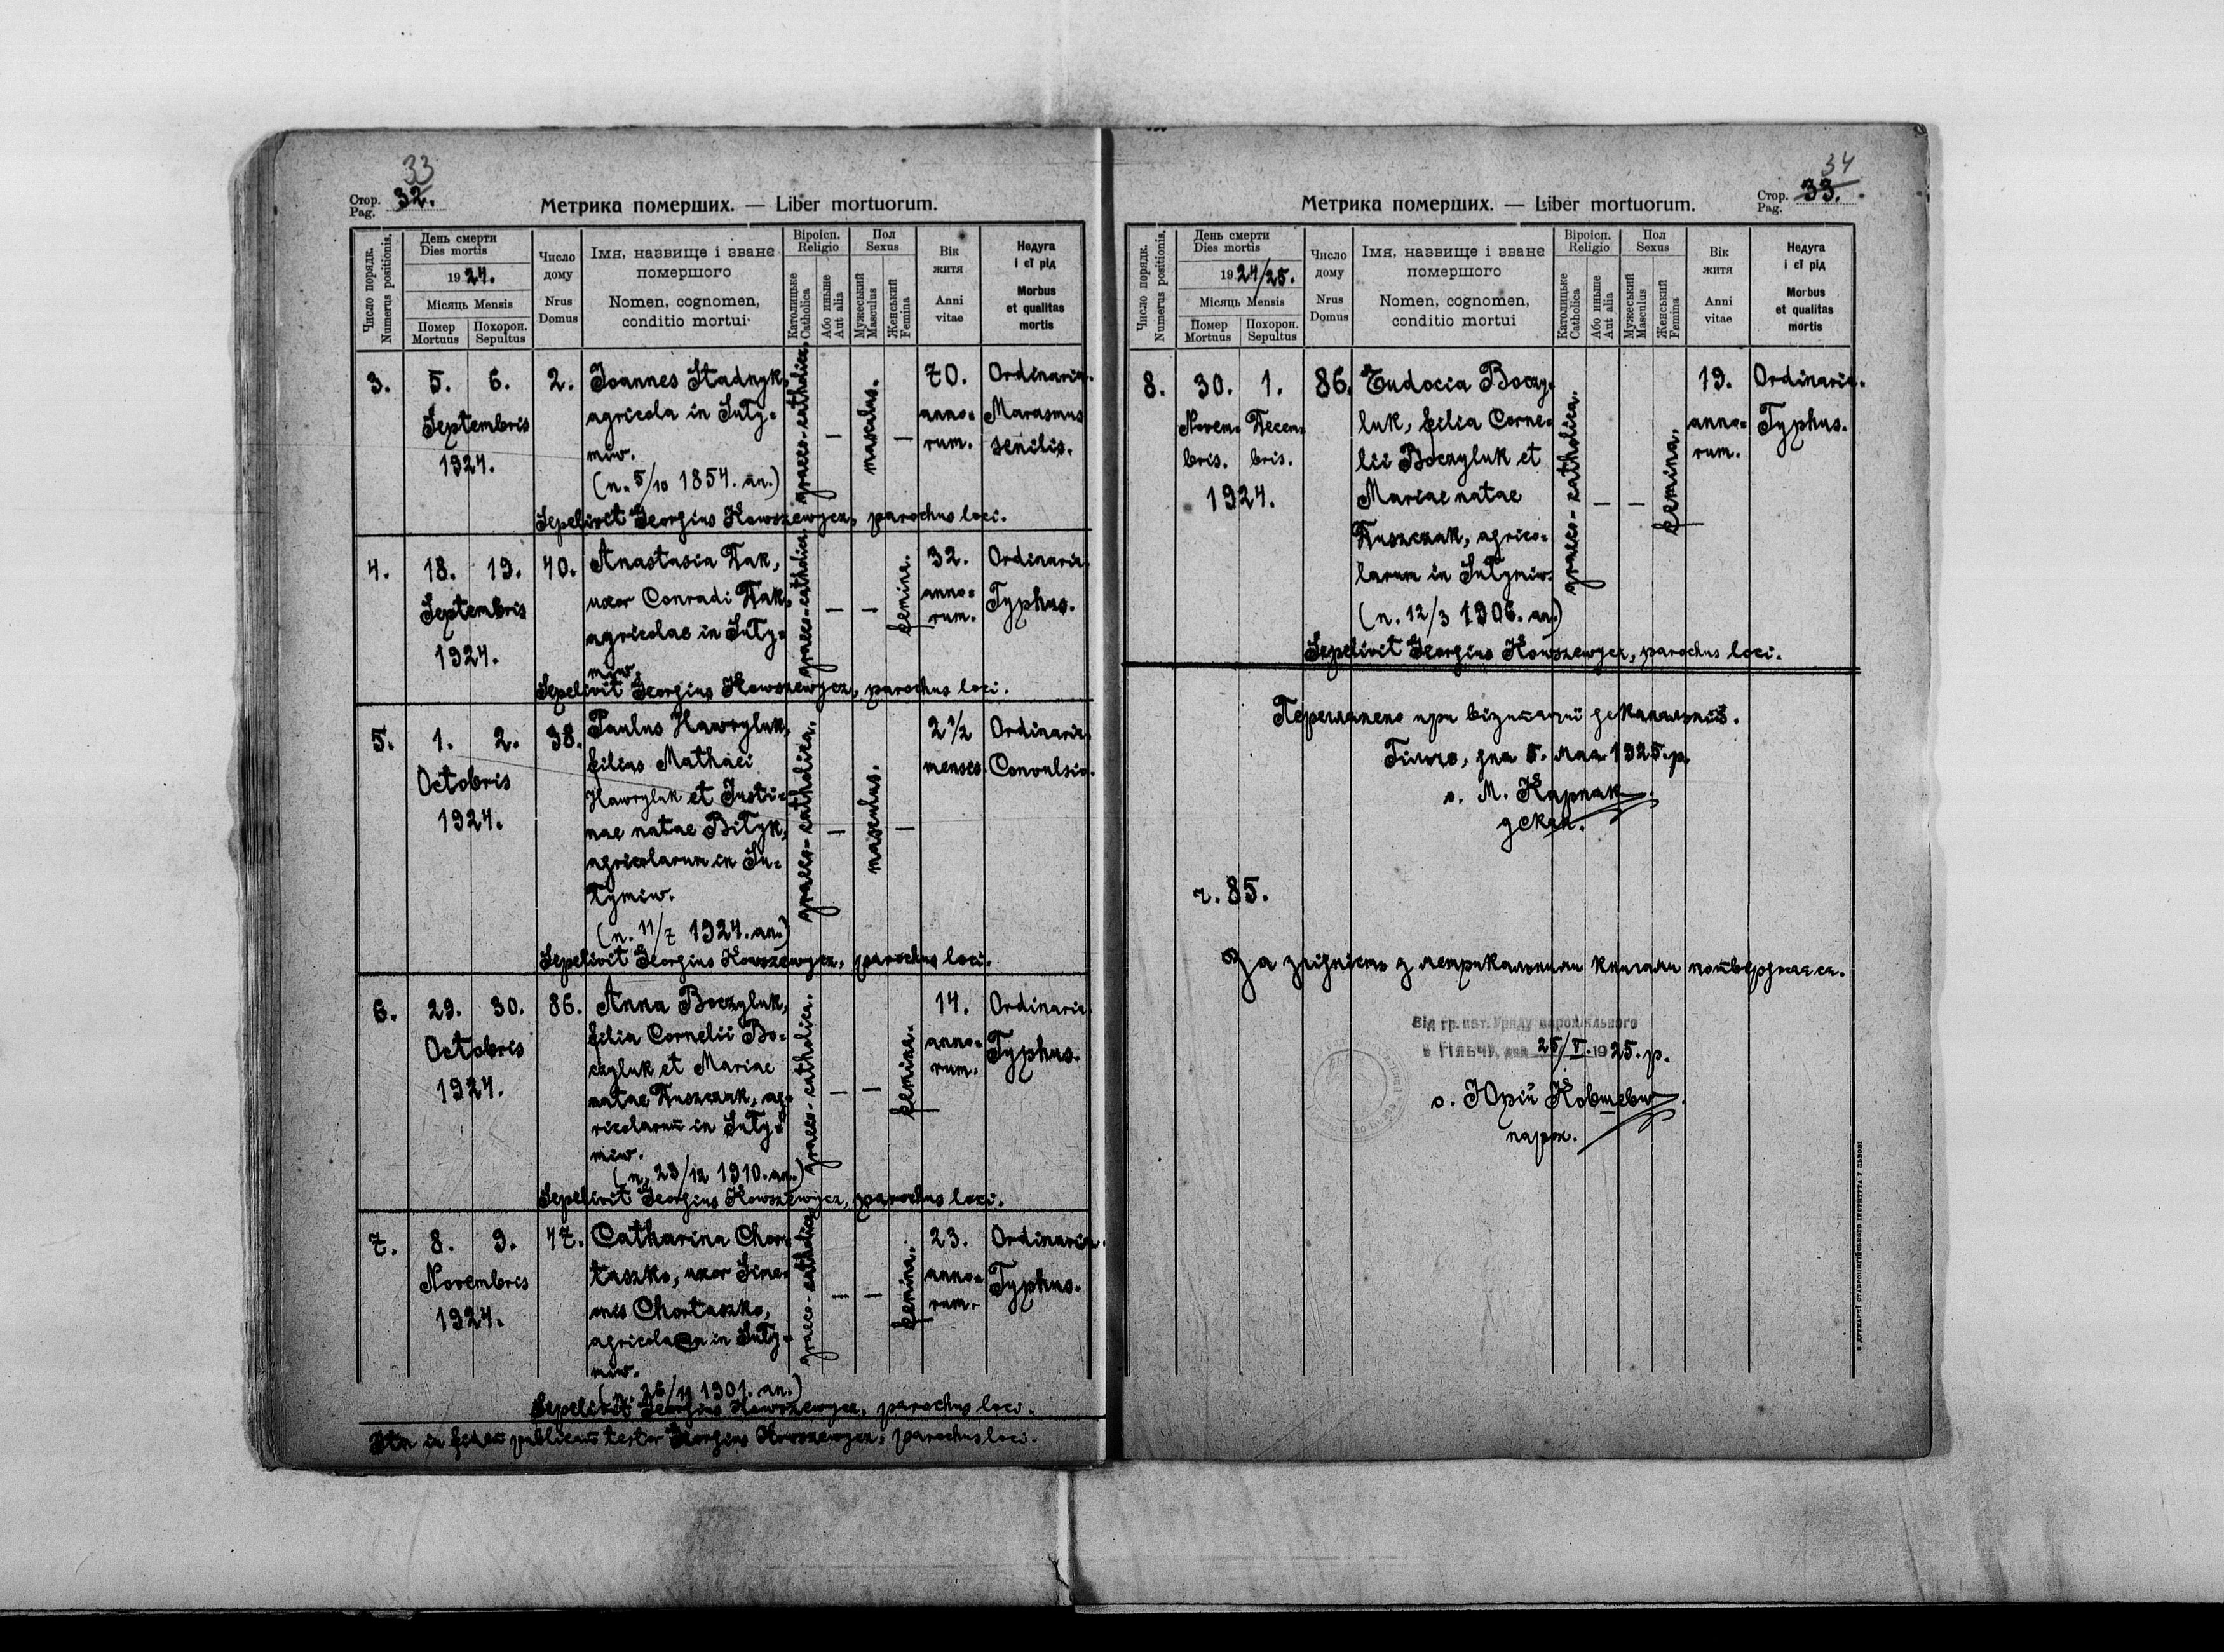 33
Стор.
Pag. 32.
Метрика померших. — Liber mortuorum.
Число порядк.
Numerus positionis.
День смерти
Dies mortis
1924.
Місяць Mensis
Помер
Mortuus
Похорон.
Sepultus
Число
дому
Nrus
Domus
Імя, назвище і зване
помершого
Nomen, cognomen,
conditio mortui
Віроісп.
Religio
Католицьке
Catholica
Або иньше
Aut alia
Пол
Sexus
Мужеський
Masculus
Женський
Femina
Вік
житя
Anni
vitae
Недуга
і єї рід
Morbus
et qualitas
mortis
3. 5. 6. 2. Joannes Stadnyk, graeco-catholica. — masculus. — 70. Ordinaria.
Septembris agricola in Suty- anno- Marasmus
1924. miw. rum. senilis.
(n. 5/10 1854. an.)
Sepelivit Georgius Kowszewycz, parochus loci.
4. 18. 19. 40. Anastasia Hak, graeco-catholica — — femina. 32. Ordinaria.
Septembris uxor Conradi Hak, anno- Typhus.
1924. agricolae in Suty- rum.
miw.
Sepelivit Georgius Kowszewycz, parochus loci.
5. 1. 2. 38. Paulus Hawryluk, graeco-catholica. — masculus. — 2 1/2 Ordinaria.
Octobris filius Mathaei menses. Convulsio.
1924. Hawryluk et Justi-
nae natae Bityk,
agricolarum in Su-
tymiw.
(n. 11/7 1924. an.)
Sepelivit Georgius Kowszewycz, parochus loci.
6. 29. 30. 86. Anna Boczyluk, graeco-catholica. — — femina. 14. Ordinaria.
Octobris filia Cornelii Bo- anno- Typhus.
1924. czyluk et Mariae rum.
natae Huszczak, ag-
ricolarum in Suty-
miw.
(n. 29/12 1910. an.)
Sepelivit Georgius Kowszewycz, parochus loci.
7. 8. 9. 47. Catharina Chor- graeco-catholica — — femina. 23. Ordinaria.
Novembris taszko, uxor Sime- anno- Typhus.
1924. onis Chortaszko, rum.
in Suty-
miw.
(n. 26/11 1901. an.)
Sepelivit Georgius Kowszewycz, parochus loci.
Ita in fidem publicam testor Georgius Kowszewycz, parochus loci.
34
Стор.
Pag. 33.
Метрика померших. — Liber mortuorum.
Число порядк.
Numerus positionis.
День смерти
Dies mortis
1924/25.
Місяць Mensis
Помер
Mortuus
Похорон.
Sepultus
Число
дому
Nrus
Domus
Імя, назвище і зване
помершого
Nomen, cognomen,
conditio mortui
Віроісп.
Religio
Католицьке
Catholica
Або иньше
Aut alia
Пол
Sexus
Мужеський
Masculus
Женський
Femina
Вік
житя
Anni
vitae
Недуга
і єї рід
Morbus
et qualitas
mortis
8. 30. 1. 86. Eudocia Boczy- graeco-catholica. — — femina. 19. Ordinaria.
Novem- Decem- luk, filia Corne- anno- Typhus.
bris. bris. lii Boczyluk et rum.
1924. Mariae natae
Huszczak, agrico-
larum in Sutymiw.
(n. 12/3 1906. an.)
Sepelivit Georgius Kowszewycz, parochus loci.
Переглянено при візитації деканальній.
Гільче, дня 5. мая 1925. р.
о. М. Карпак
декан.
ч. 85.
За згідність з метрикальними книгами потверджаєся.
Від гр. кат. Уряду парохіяльного
в Гільчу, дня 25/V. 1925. р.
о. Юрій Ковшевич
парох.
З ДРУКАРНЇ СТАВРОПИГІЙСЬКОГО ІНСТИТУТА У ЛЬВОВІ